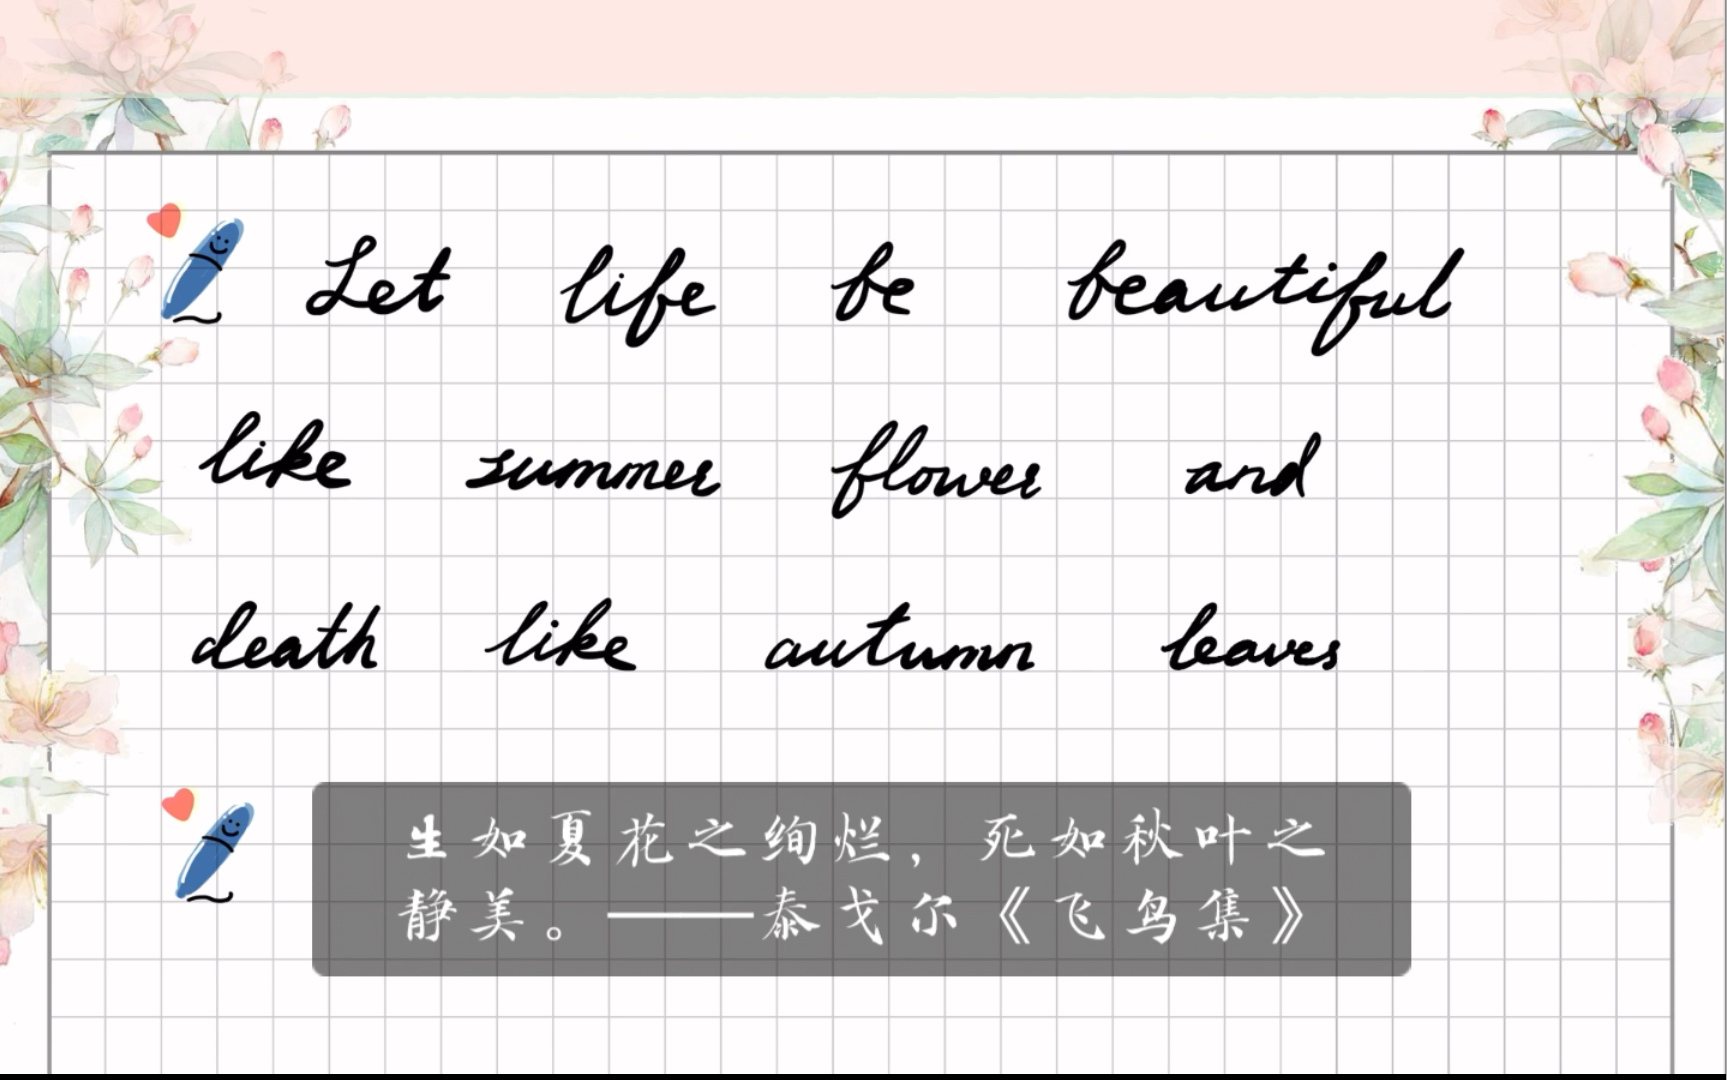 Let life be beautiful
like summer flower and
death like autumn leaves
生如夏花之绚烂，死如秋叶之
静美。——泰戈尔《飞鸟集》